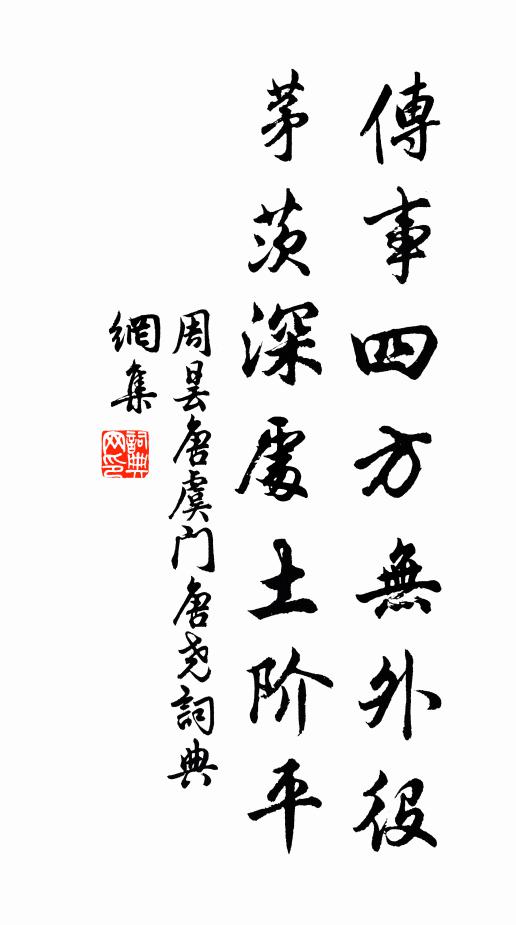 傳事四方無外役
茅茨深處土阶平
周昙唐虞门唐尧詞典
網集
詞典
网印